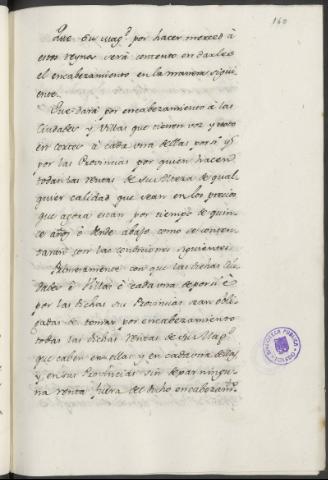 160
Que Su mag.d por hacer merced à
estos reynos será contento en darles
el encabezamiento en la manera sigui
ente.
Que dará por encabezamiento á las
Ciudades y Villas que tienen voz y voto
en cortes à cada una dellas por si y
por las Provincias por quien hacen
todas las rentas de su Meera de qual
quier calidad que sean en los precios
que agora estan por tiempo de quin
ce años ò dende abajo como se concer
taràn con las condiciones siguientes.
Primeramente con que las dichas Ciu
dades ò Villas ò cada una de por si è
por las dichas sus Provincias sean obli
gadas de tomar por encabezamiento
todas las dichas Rentas de su Mag.d
que caben en ellas y en cada una dellas
y en sus Provincias sin dexar ningu
na renta fuera del dicho encabezam.to
BIBLIOTECA PUBLICA
TOLEDO